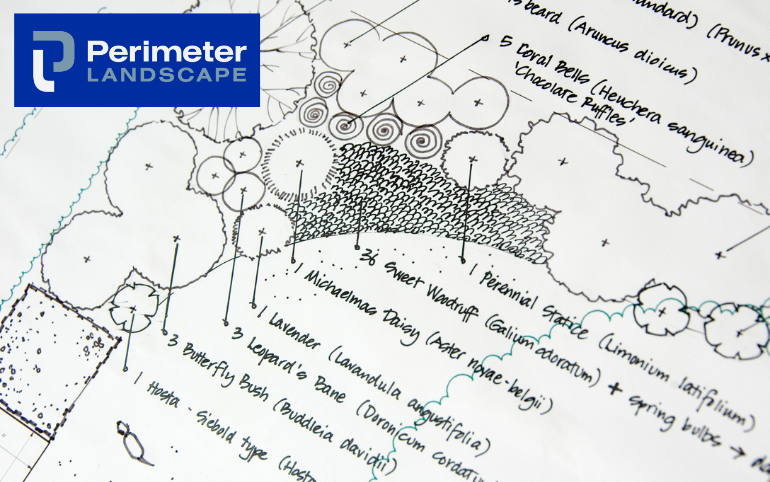 Perimeter
LANDSCAPE
beard (Aruncus dioicus)
5 Coral Bells (Heuchera sanguinea)
'Chocolate Ruffles'
1 Perennial Statice (Limonium latifolium)
36 Sweet Woodruff (Galium odoratum) + spring bulbs →
1 Michaelmas Daisy (Aster novae-belgii)
1 Lavender (Lavandula angustifolia)
3 Leopard's Bane (Doronicum
3 Butterfly Bush (Buddleia davidii)
1 Hosta - Siebold type (Hosta